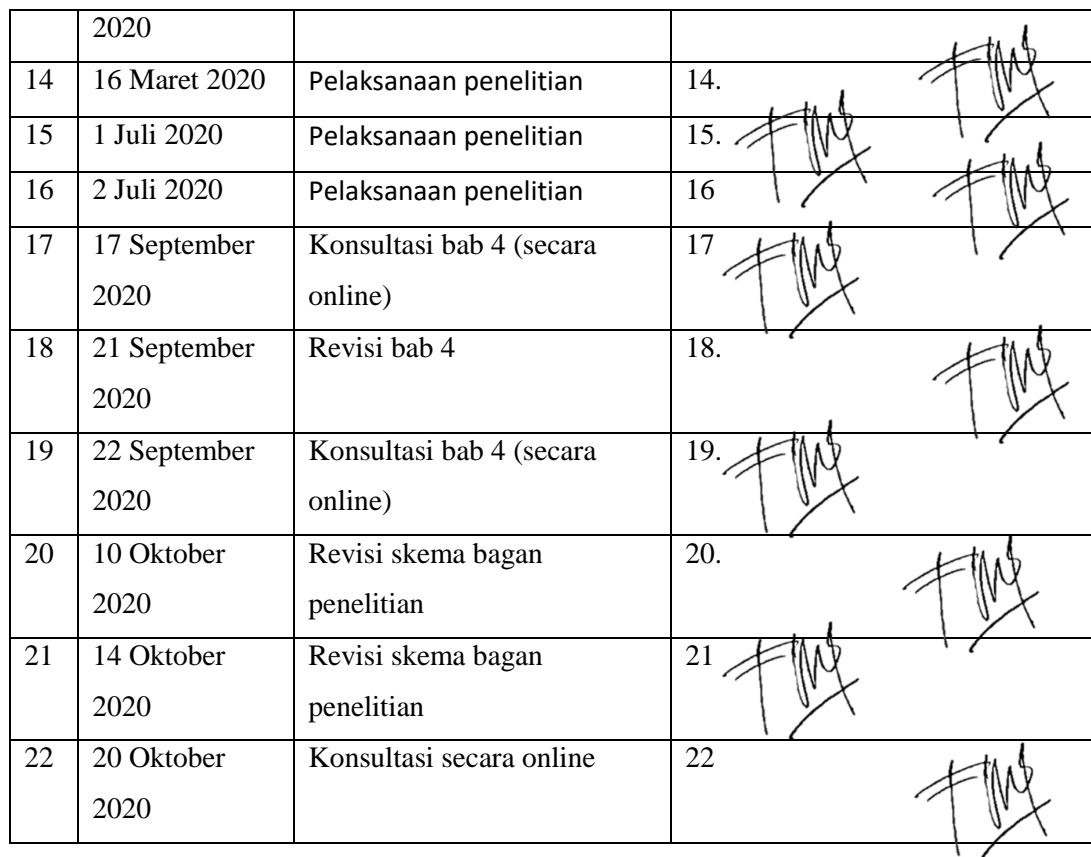 2020
14 16 Maret 2020 Pelaksanaan penelitian 14.
15 1 Juli 2020 Pelaksanaan penelitian 15.
16 2 Juli 2020 Pelaksanaan penelitian 16
17 17 September Konsultasi bab 4 (secara 17
2020 online)
18 21 September Revisi bab 4 18.
2020
19 22 September Konsultasi bab 4 (secara 19.
2020 online)
20 10 Oktober Revisi skema bagan 20.
2020 penelitian
21 14 Oktober Revisi skema bagan 21
2020 penelitian
22 20 Oktober Konsultasi secara online 22
2020